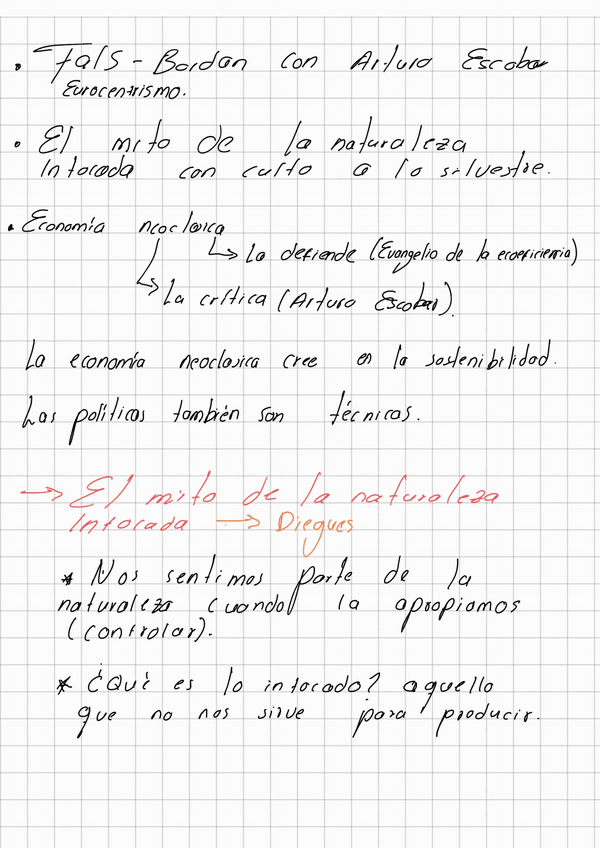 • Fals - Bordan con Arturo Escobar
Eurocentrismo.
• El mito de la naturaleza
Intocada con culto a lo silvestre.
• Economía neoclasica
↳ La defiende (Evangelio de la ecoeficiencia)
↳ La crítica (Arturo Escobar).
La economía neoclasica cree en la sostenibilidad.
Las políticas también son técnicas.
→ El mito de la naturaleza
Intocada → Diegues
* Nos sentimos parte de la
naturaleza cuando la apropiamos
(controlar).
* ¿Qué es lo intocado? aquello
que no nos sirve para producir.